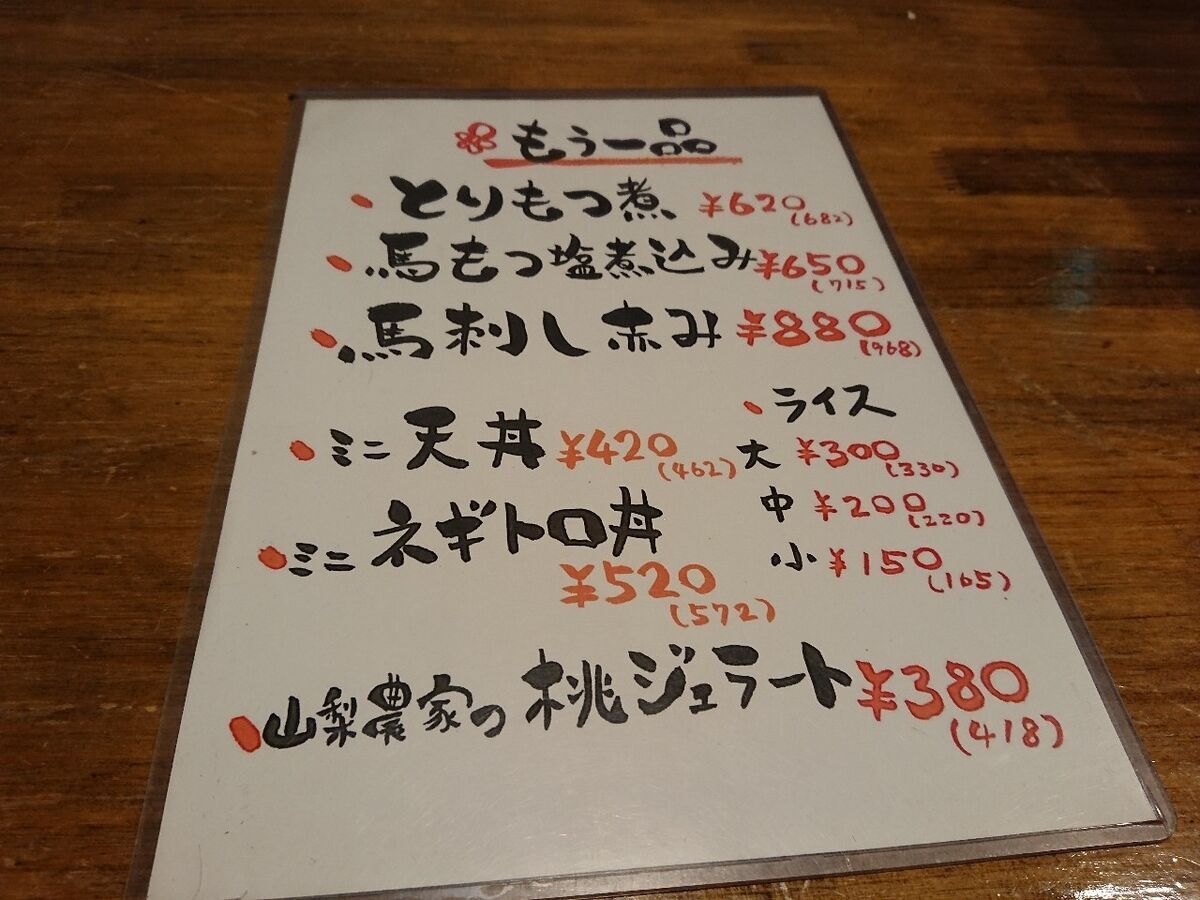 もう一品
とりもつ煮 ¥620(682)
馬もつ塩煮込み ¥650(715)
馬刺し赤み ¥880(968)
ミニ天丼 ¥420(462)
ミニネギトロ丼
¥520(572)
ライス
大 ¥300(330)
中 ¥200(220)
小 ¥150(165)
山梨農家の桃ジェラート ¥380(418)